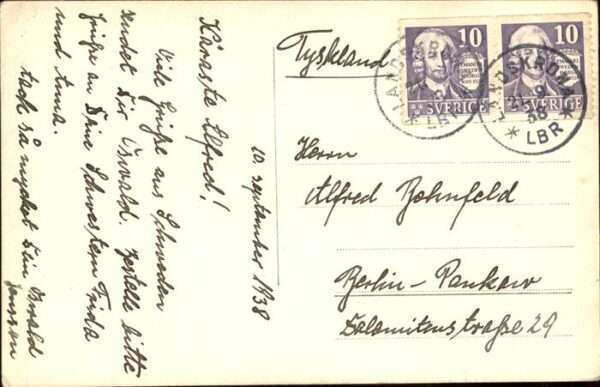 Käraste Alfred!
10. september 1938
Viele Grüße aus Schweden
sendet Dir Oswald. Bestelle bitte
Grüße an Deine Schwestern Frida
und Anna.
tack så mycket Dein Oswald
Tyskland
Herrn
Alfred Bohnfeld
Berlin-Pankow
Dolomitenstraße 29
10
SVERIGE
10
SVERIGE
LANDSKRONA
LBR
LANDSKRONA
21-9
38
LBR